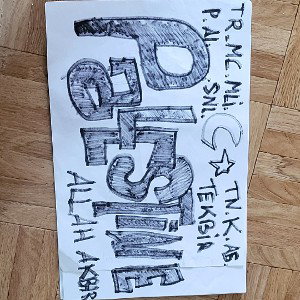 TR.MC.Mli.
P.Al. SNi.
TN.K.AB.
TEKBiA
PaLESTiNE
ALLAH AKBAR